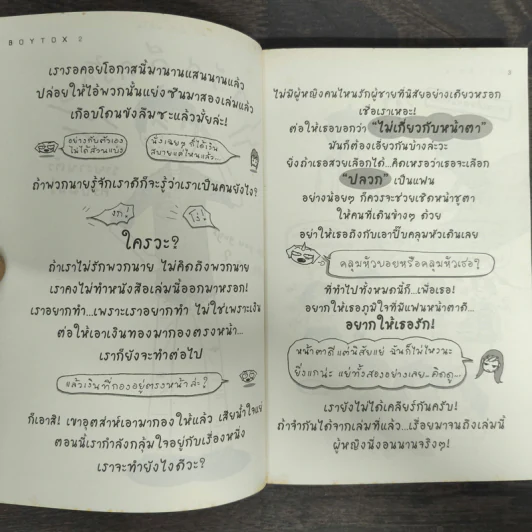 BOYTOX 2
เรารอคอยโอกาสนี้มานานแสนนานแล้ว
ปล่อยให้ไอ้พวกนั้นแย่งซีนมาสองเล่มแล้ว
เกือบโดนขังลืมซะแล้วมั้ยล่ะ!
อย่างกับตัวเอง
ไม่ได้ส่วนแบ่ง
นั่งเฉยๆ ก็ได้เงิน
สบายแค่ไหนแล้ว...
ถ้าพวกนายรู้จักเราดีก็จะรู้ว่าเราเป็นคนยังไง?
งก!
โง่!
ใครวะ?
ถ้าเราไม่รักพวกนาย ไม่คิดถึงพวกนาย
เราคงไม่ทำหนังสือเล่มนี้ออกมาหรอก!
เราอยากทำ...เพราะเราอยากทำ ไม่ใช่เพราะเงิน
ต่อให้เอาเงินทองมากองตรงหน้า...
เราก็ยังจะทำต่อไป
แล้วเงินที่กองอยู่ตรงหน้าล่ะ?
ก็เอาสิ! เขาอุตส่าห์เอามากองให้แล้ว เสียน้ำใจแย่
ตอนนี้เรากำลังกลุ้มใจอยู่กับเรื่องหนึ่ง
เราจะทำยังไงดีวะ?
3
ไม่มีผู้หญิงคนไหนรักผู้ชายที่นิสัยอย่างเดียวหรอก
เชื่อเราเหอะ!
ต่อให้เธอบอกว่า "ไม่เกี่ยวกับหน้าตา"
มันก็ต้องเอียวกันบ้างล่ะวะ
ยิ่งถ้าเธอสวยเลือกได้...คิดเหรอว่าเธอจะเลือก
"ปลวก" เป็นแฟน
อย่างน้อยๆ ก็ควรจะช่วยเชิดหน้าชูตา
ให้คนที่เดินข้างๆ ด้วย
อย่าให้เธอถึงกับเอาปี๊บคลุมหัวเดินเลย
คลุมหัวบอยหรือคลุมหัวเธอ?
ที่ทำไปทั้งหมดนี้ก็...เพื่อเธอ!
อยากให้เธอภูมิใจที่มีแฟนหน้าตาดี...
อยากให้เธอรัก!
หน้าตาดี แต่นิสัยแย่ ฉันก็ไม่ไหวนะ
ยิ่งแกน่ะ แย่ทั้งสองอย่างเลย...คิดดู...
เรายังไม่ได้เคลียร์กันครับ!
ถ้าจำกันได้จากเล่มที่แล้ว...เรื่อยมาจนถึงเล่มนี้
ผู้หญิงนี่งอนนานจริงๆ!